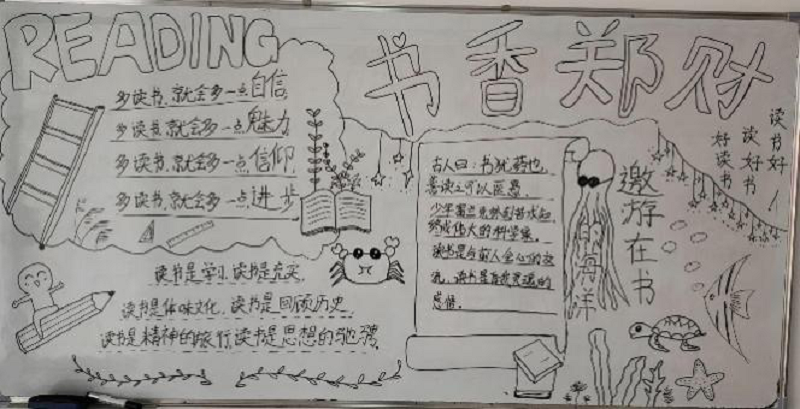 READING
书香郑财
多读书,就会多一点自信
多读书,就会多一点魅力
多读书,就会多一点信仰
多读书,就会多一点进步
读书是学习,读书是充实
读书是体味文化,读书是回顾历史
读书是精神的旅行,读书是思想的驰骋
古人曰:书犹药也,
善读之可以医愚
终成伟大的科学家。
读书是与前人会心的交
流,读书是
感悟。
遨游在书
的海洋
读书好
读好书
好读书